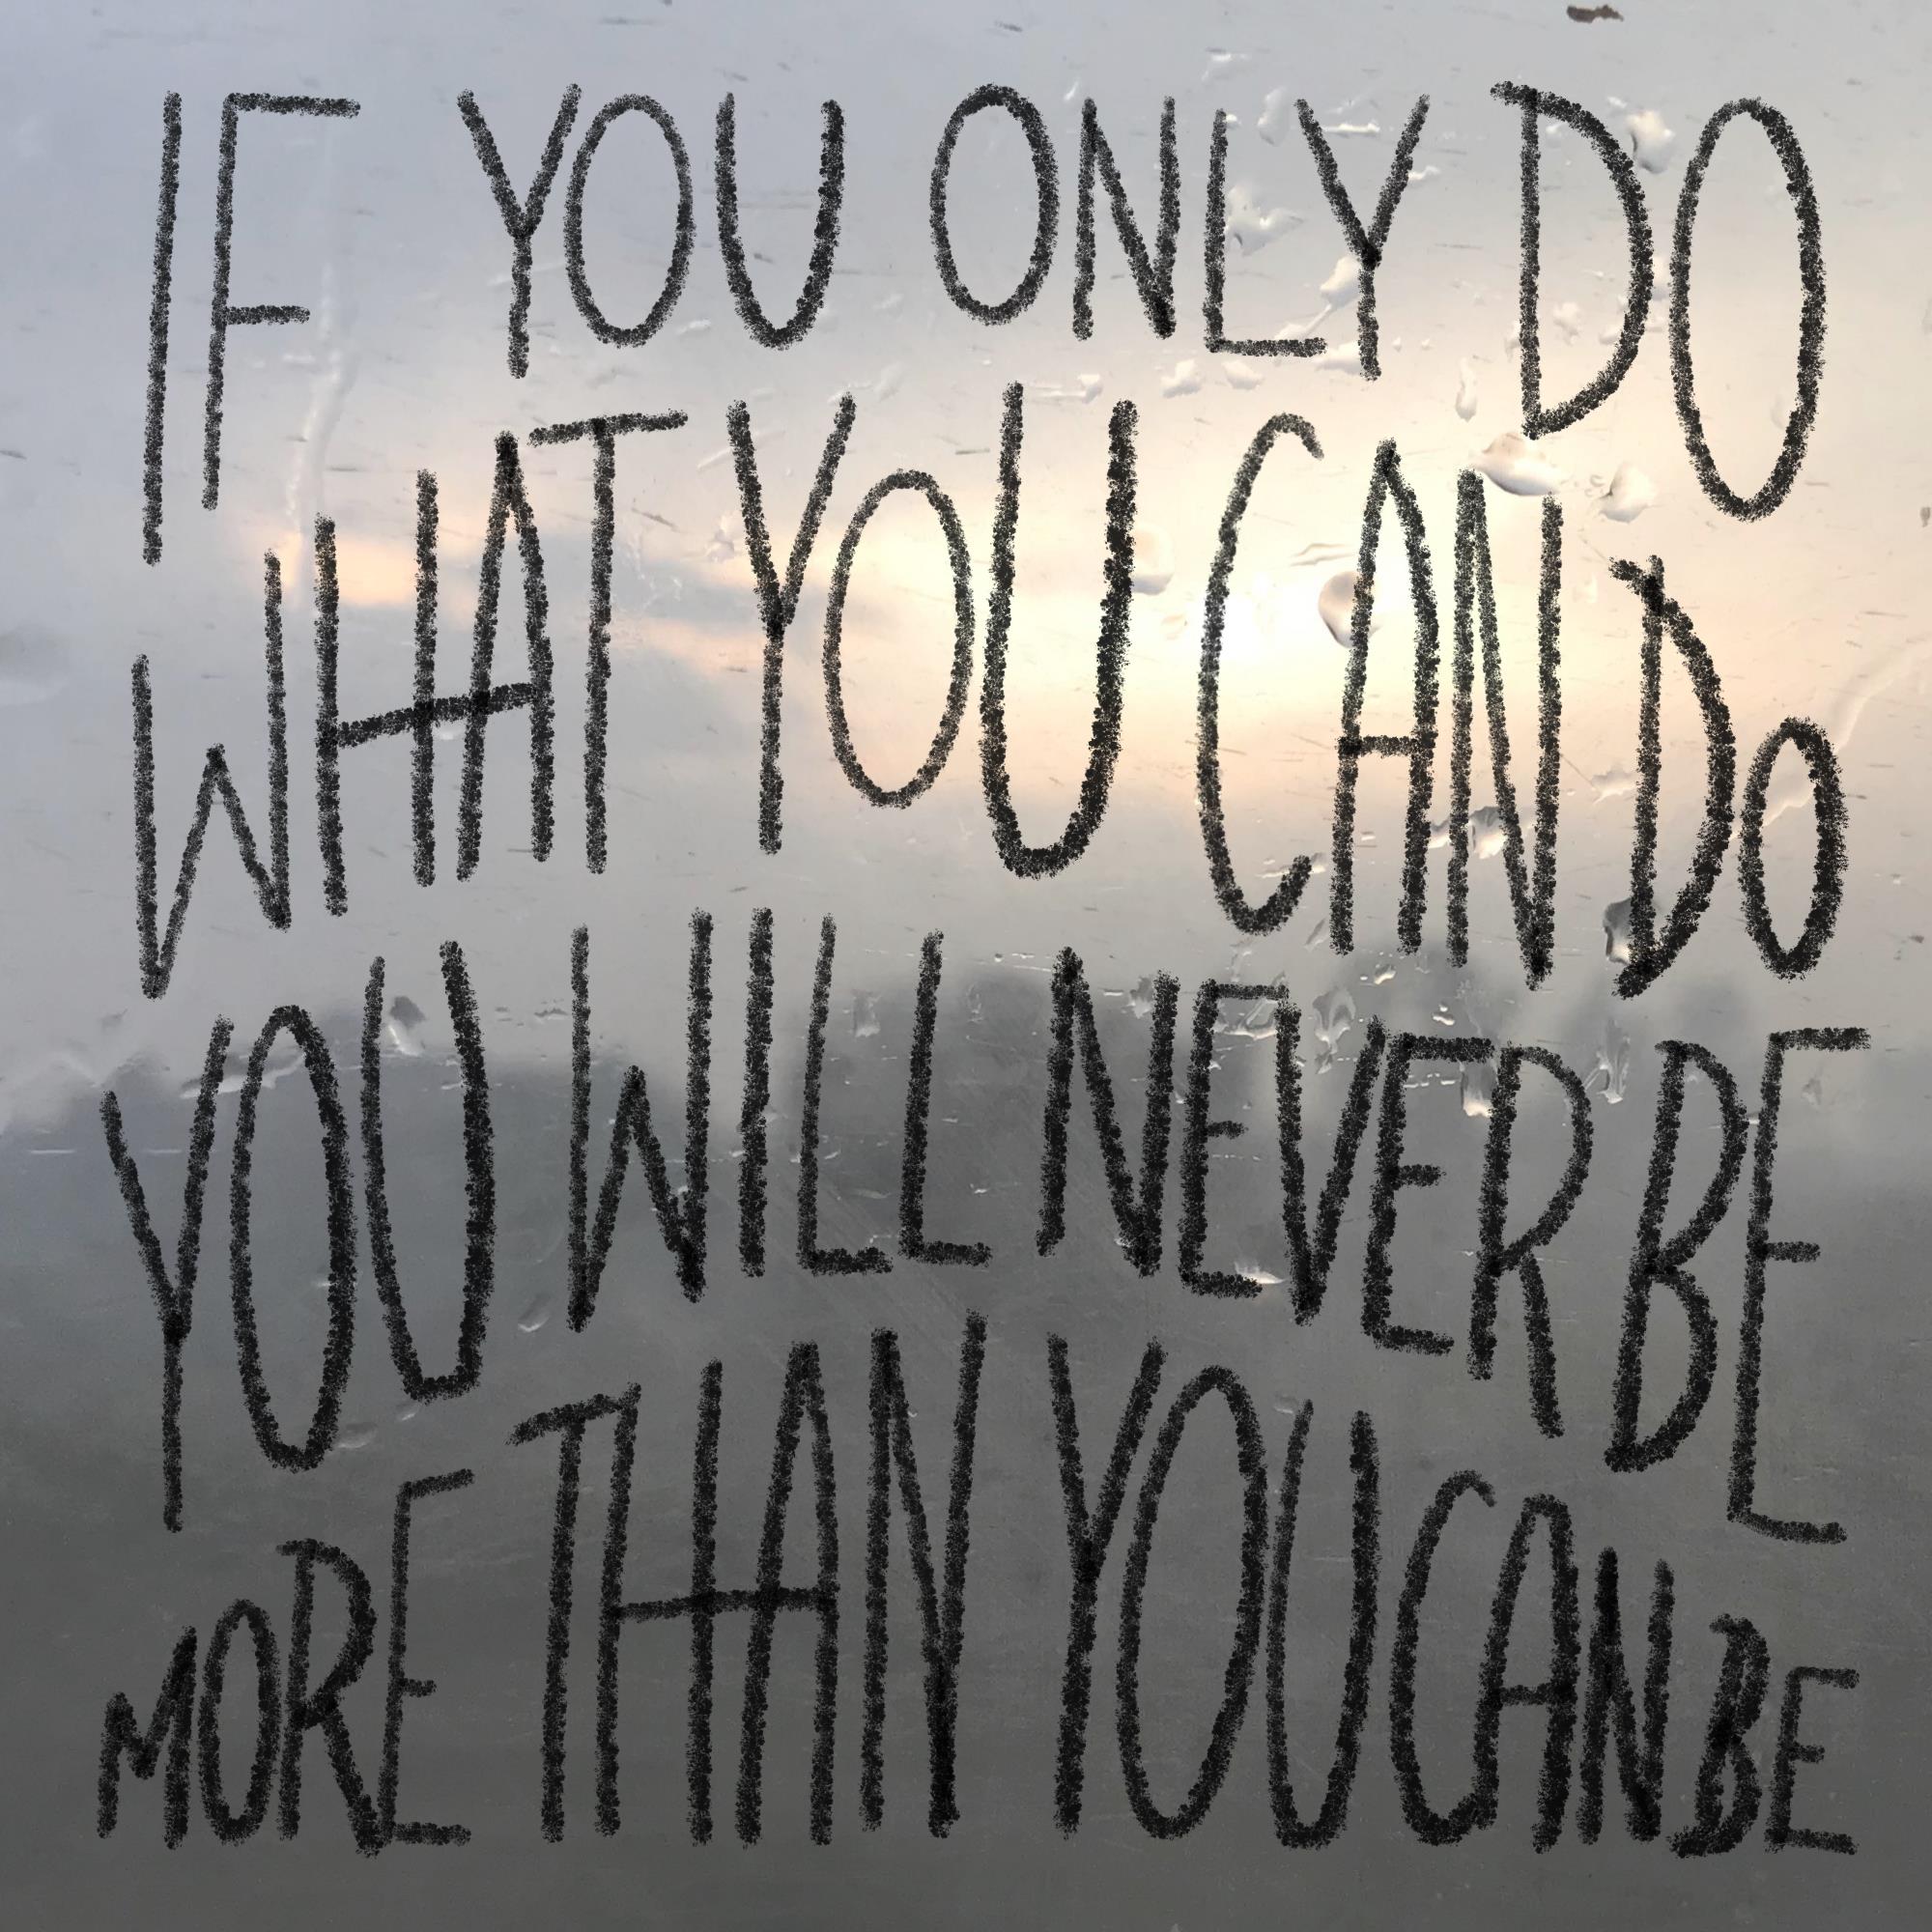 IF YOU ONLY DO
WHAT YOU CAN DO
YOU WILL NEVER BE
MORE THAN YOU CAN BE